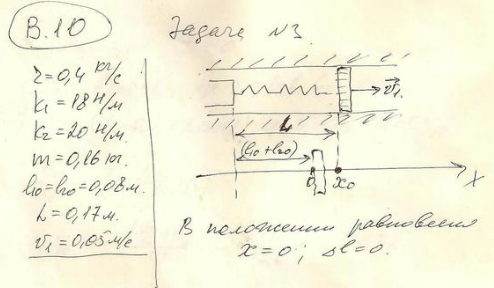 В.10
Задача №3
r=0,4 кг/с
k₁=18 Н/м
k₂=20 Н/м.
m=0,16 кг.
l₁₀=l₂₀=0,08 м.
L=0,17 м.
v₁=0,05 м/с
v⃗₁
L
(l₁₀+l₂₀)
0 x₀ X
В положении равновесия
x=0; Δl=0.